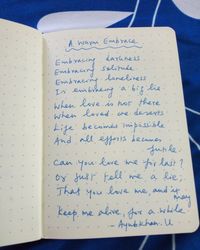 A Warm Embrace
Embracing darkness
Embracing solitude
Embracing loneliness
Is embracing a big lie
When love is not there
When loved one deserts
Life becomes impossible
And all efforts becomes
futile.
Can you love me for last?
Or just tell me a lie;
That you love me and it
may
keep me alive, for a while
- Ayubkhan. U